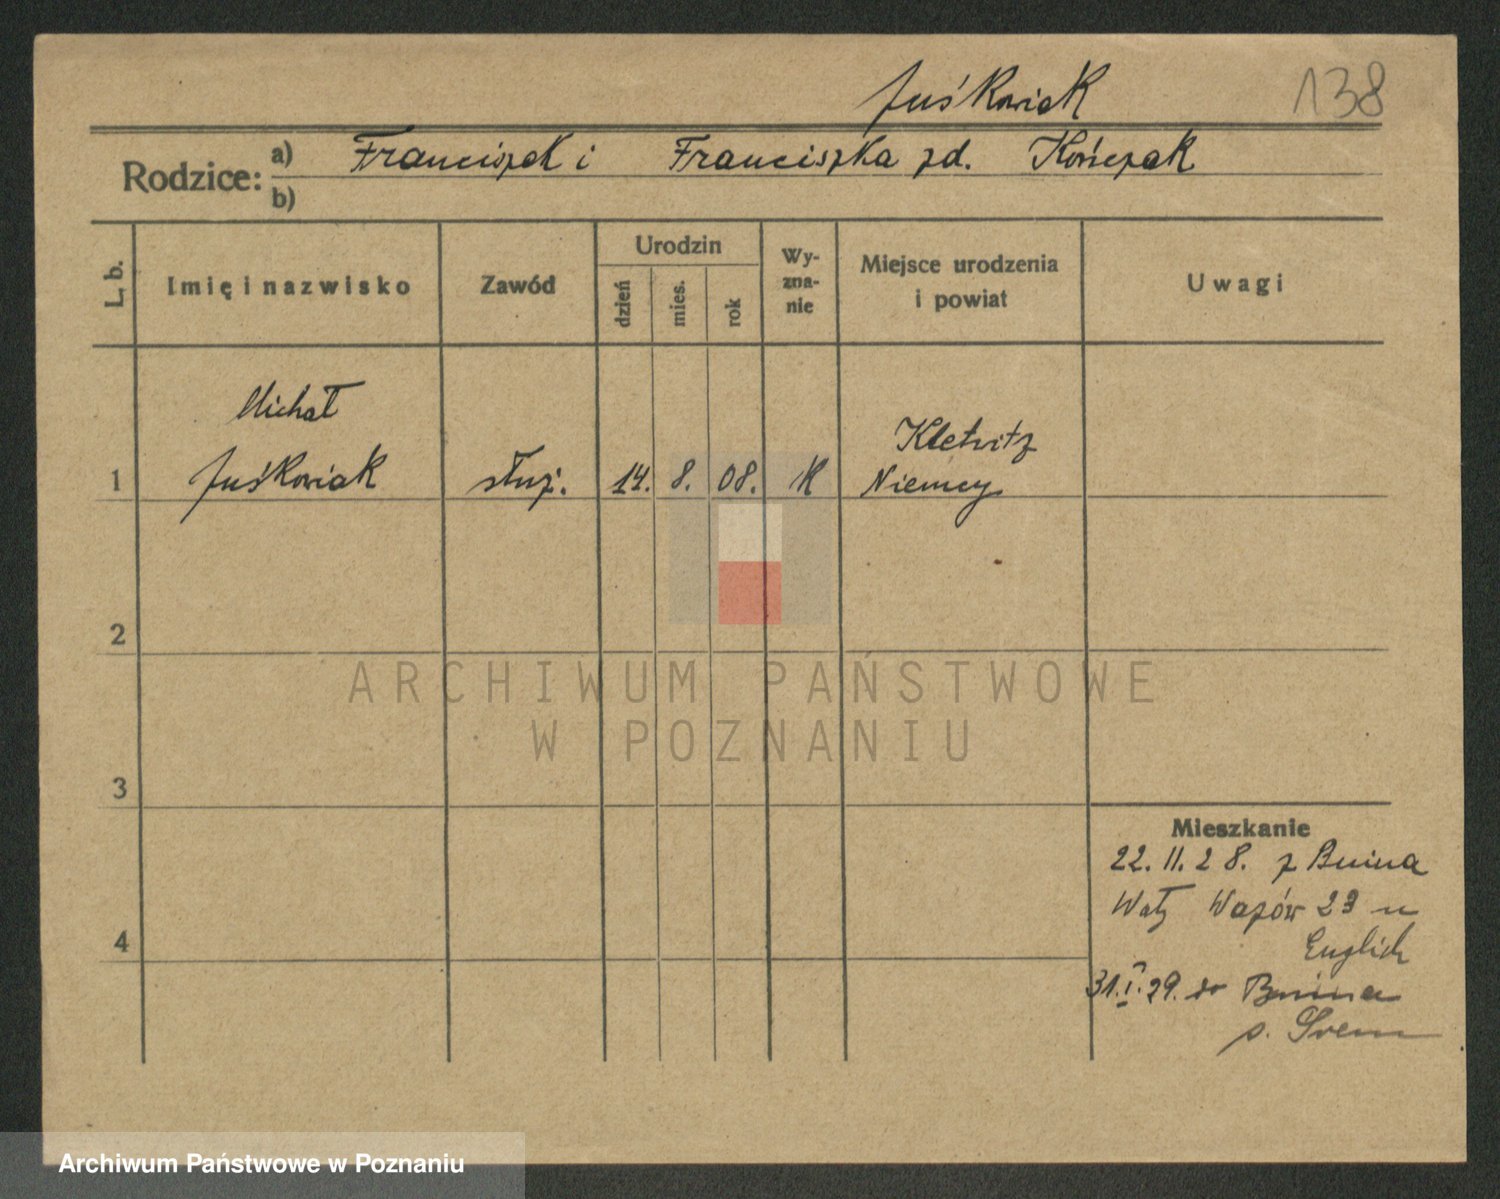 Juśkowiak 138
Rodzice: a) Franciszek i Franciszka zd. Kończak
b)
L. b. Imię i nazwisko Zawód Urodzin dzień mies. rok Wyznanie Miejsce urodzenia i powiat Uwagi
Michał
Juśkowiak
1 służ. 14. 8. 08. K
Kletwitz
Niemcy
2
ARCHIWUM PAŃSTWOWE
W POZNANIU
3
Mieszkanie
22. II. 28. z Bnina
Wały Wazów 23 u
Englich
4
31. I. 29. do Bnina
p. Śrem
Archiwum Państwowe w Poznaniu